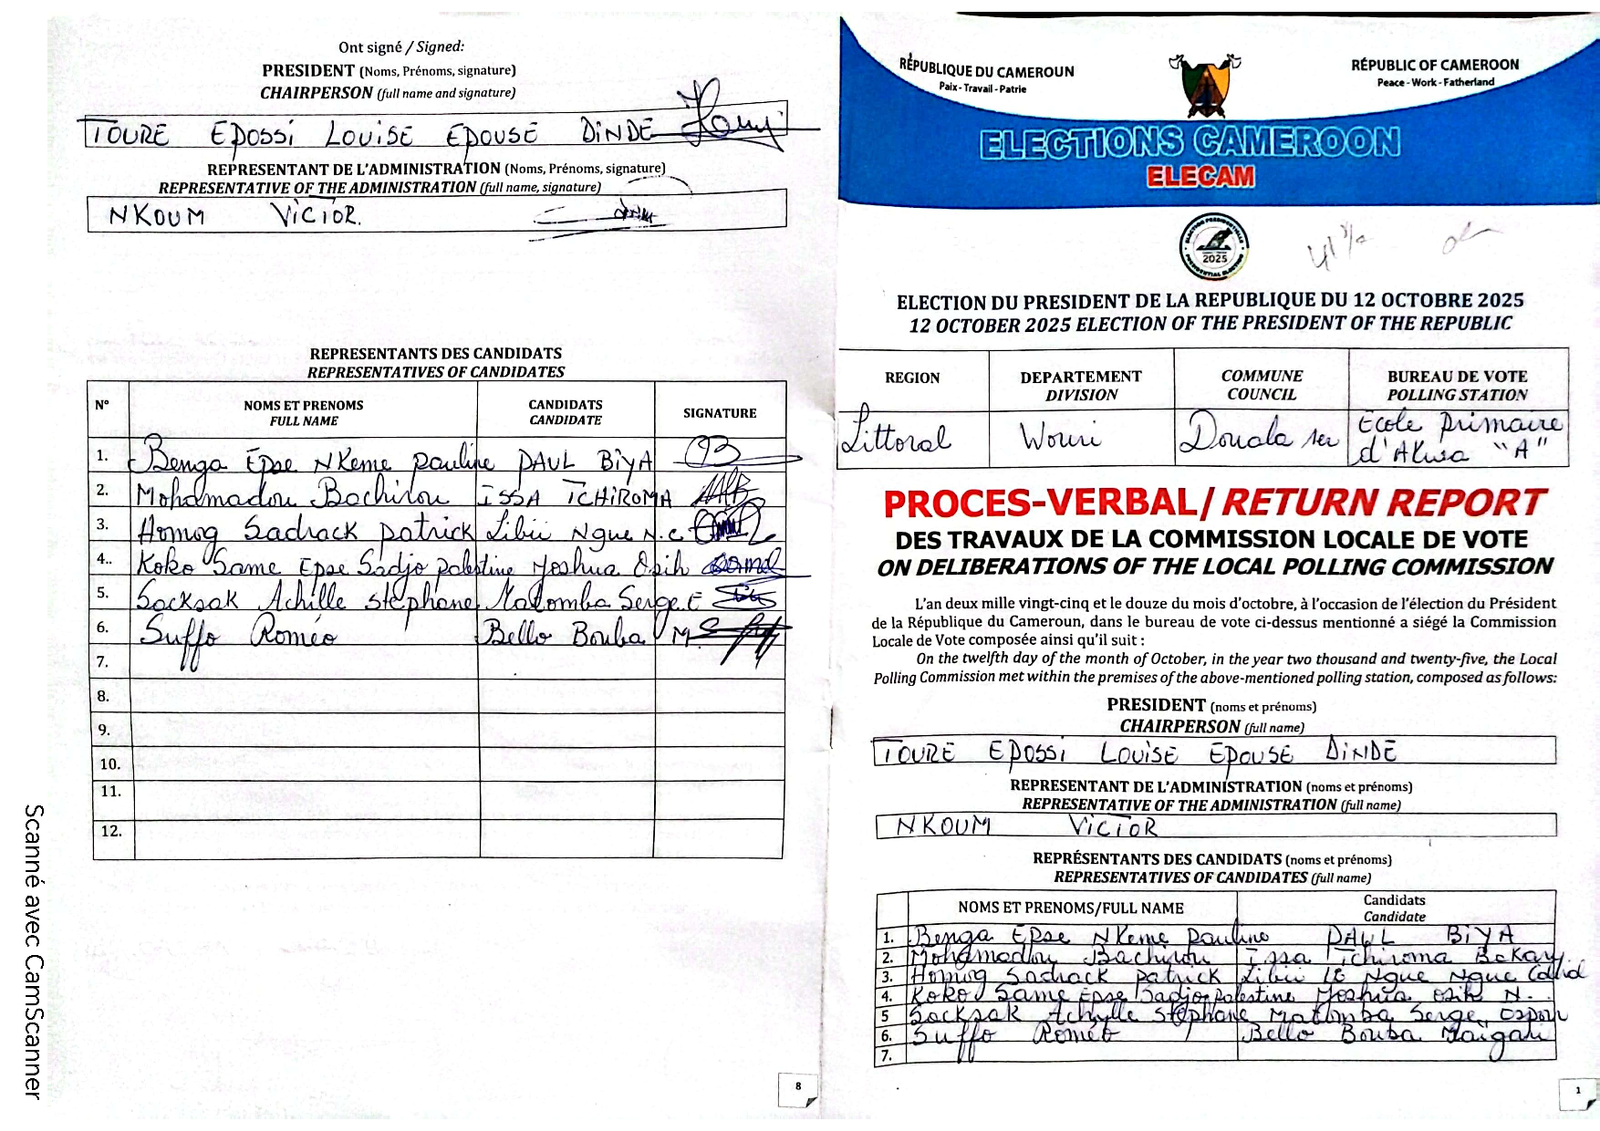 Ont signé / Signed:
PRESIDENT (Noms, Prénoms, signature)
CHAIRPERSON (full name and signature)
TOURE EPOSSI LOUISE EPOUSE DINDE
REPRESENTANT DE L'ADMINISTRATION (Noms, Prénoms, signature)
REPRESENTATIVE OF THE ADMINISTRATION (full name, signature)
NKOUM VICTOR.
REPRESENTANTS DES CANDIDATS
REPRESENTATIVES OF CANDIDATES
N° NOMS ET PRENOMS FULL NAME CANDIDATS CANDIDATE SIGNATURE
1. Benga Epse NKeme Pauline PAUL BIYA
2. Mohamadou Bachirou ISSA TCHIROMA
3. Homog Sadrack Patrick Libii Ngue N.C
4.. Koko Same Epse Sadjo Palestine Joshua Osih
5. Socksak Achille Stéphane Matomba Serge E
6. Suffo Roméo Bello Bouba M.
7.
8.
9.
10.
11.
12.
8
Scanné avec CamScanner
RÉPUBLIQUE DU CAMEROUN
Paix - Travail - Patrie
RÉPUBLIC OF CAMEROON
Peace - Work - Fatherland
ELECTIONS CAMEROON
ELECAM
ELECTION PRESIDENTIELLE
2025
PRESIDENTIAL ELECTION
ELECTION DU PRESIDENT DE LA REPUBLIQUE DU 12 OCTOBRE 2025
12 OCTOBER 2025 ELECTION OF THE PRESIDENT OF THE REPUBLIC
REGION DEPARTEMENT DIVISION COMMUNE COUNCIL BUREAU DE VOTE POLLING STATION
Littoral Wouri Douala 1er Ecole Primaire d'Akwa "A"
PROCES-VERBAL/ RETURN REPORT
DES TRAVAUX DE LA COMMISSION LOCALE DE VOTE
ON DELIBERATIONS OF THE LOCAL POLLING COMMISSION
L'an deux mille vingt-cinq et le douze du mois d'octobre, à l'occasion de l'élection du Président
de la République du Cameroun, dans le bureau de vote ci-dessus mentionné a siégé la Commission
Locale de Vote composée ainsi qu'il suit :
On the twelfth day of the month of October, in the year two thousand and twenty-five, the Local
Polling Commission met within the premises of the above-mentioned polling station, composed as follows:
PRESIDENT (noms et prénoms)
CHAIRPERSON (full name)
TOURE EPOSSI LOUISE EPOUSE DINDE
REPRESENTANT DE L'ADMINISTRATION (noms et prénoms)
REPRESENTATIVE OF THE ADMINISTRATION (full name)
NKOUM VICTOR
REPRÉSENTANTS DES CANDIDATS (noms et prénoms)
REPRESENTATIVES OF CANDIDATES (full name)
NOMS ET PRENOMS/FULL NAME Candidats Candidate
1. Benga Epse NKeme Pauline PAUL BIYA
2. Mohamadou Bachirou Issa Tchiroma Bakary
3. Homog Sadrack Patrick Libii LE Ngue Ngue Cabral
4. Koko Same Epse Sadjo Palestine Joshua Osih N.
5 Socksak Achylle Stéphane Matomba Serge Espoir
6. Suffo Roméo Bello Bouba Maïgari
7.
1